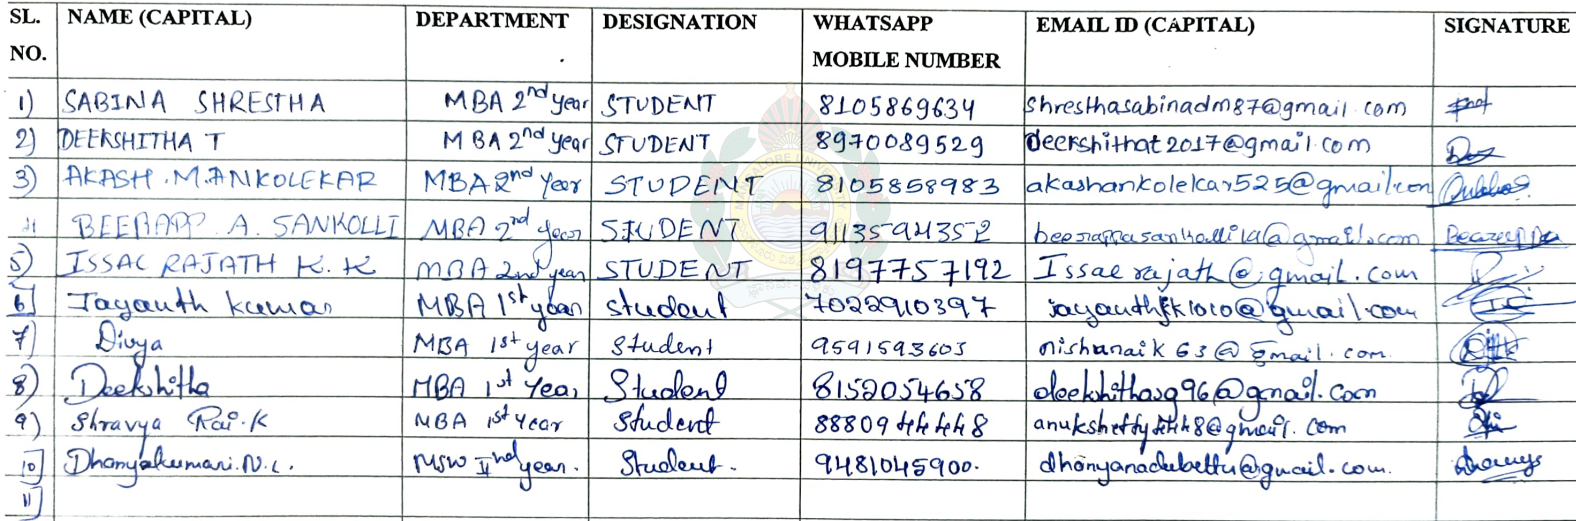 SL. NO. NAME (CAPITAL) DEPARTMENT DESIGNATION WHATSAPP MOBILE NUMBER EMAIL ID (CAPITAL) SIGNATURE
1) SABINA SHRESTHA MBA 2nd year STUDENT 8105869634 shresthasabinadm87@gmail.com
2) DEEKSHITHA T MBA 2nd year STUDENT 8970089529 deekshithat2017@gmail.com
3) AKASH.M.ANKOLEKAR MBA 2nd Year STUDENT 8105858983 akashankolekar525@gmail.com
BEERAPP. A. SANKOLLI MBA 2nd year STUDENT 9113594352
5) ISSAC RAJATH K.K MBA 2nd year STUDENT 8197757192 Issac rajath@gmail.com
6] Jayanth kumar MBA 1st year student 7022910397
7) Divya MBA 1st year Student 9591593603 nishanaik63@gmail.com
8) Deekshitha MBA 1st Year Student 8152054658 deekshithasg96@gmail.com
9) Shravya Rai.K MBA 1st year Student 8880944448 anukshetty4448@gmail.com
10) Dhanyakumari.N.C. MSW II nd year. Student. 9481045900. dhanyanadubettu@gmail.com.
11)